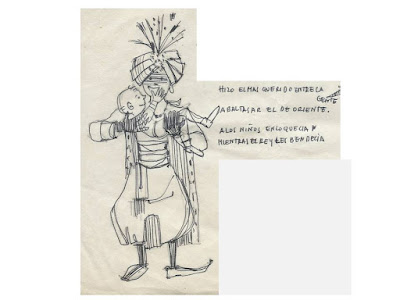 HIZO EL MAS QUERIDO ENTRE LA
GENTE
A BALTASAR EL DE ORIENTE.
A LOS NIÑOS ENLOQUECIA Y
MIENTRAS EL REY LES BENDECIA